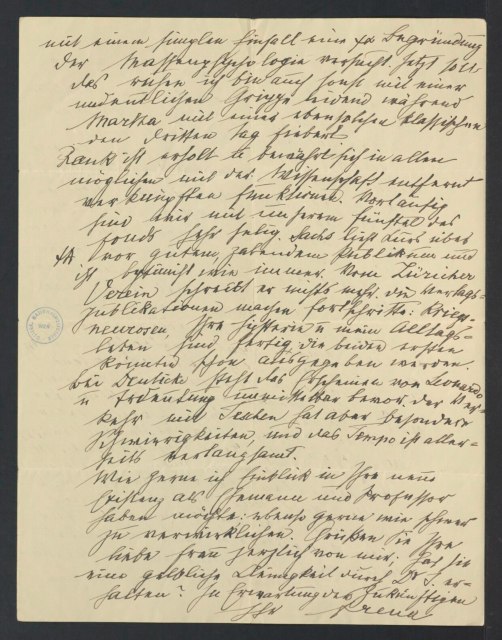 mit einem simplen Einfall eine ψα Begründung
der Massenpsychologie versucht. Jetzt soll
das ruhen ich bin auch sonst mit einer
undeutlichen Grippe leidend während
Martha mit einer ebensolchen klassischen
den dritten Tag fiebert.
Rank ist erholt u bewährt sich in allen
möglichen mit der Wissenschaft entfernt
verknüpften Funktionen. Vorläufig
sind wir mit unserem Fünftel des
Fonds sehr selig. Sachs liest Kurs über
ψA vor gutem, zahlendem Publikum und
ist wie immer. Vom Züricher
Verein schreibt er nichts mehr. die Verlags-
publikationen machen Fortschritte: Kriegs-
neurosen, Ihre Hysterie u mein Alltags-
leben sind fertig, die beiden ersten
könnten schon ausgegeben werden.
bei Deuticke steht das Erscheinen von Leonardo
u Traumdeutung unmittelbar bevor. der Ver-
kehr mit Teschen hat aber besondere
Schwierigkeiten, und das Tempo ist aller-
seits verlangsamt.
Wie gerne ich Einblick in Ihre neue
Existenz als Ehemann und Professor
haben möchte: ebenso gerne wie schwer
zu verwirklichen. Grüßen Sie Ihre
liebe Frau herzlich von mir. Hat sie
eine gelbliche Kleinigkeit durch Dr S. er-
halten? In Erwartung des Zukünftigen
Ihr Freud